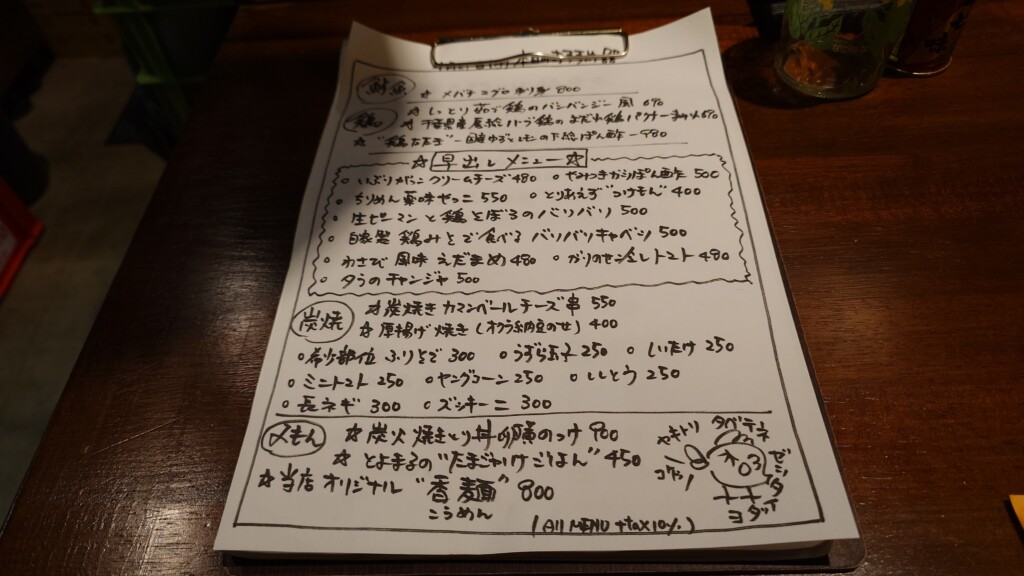 鮮魚 ☆ メバチマグロ お刺身 800
鶏 ☆ しっとり茹で鶏のバンバンジー風 690
☆ 千葉県産 ハーブ鶏のよだれ鶏 パクチー
☆ "鶏たたき" ぽん酢 980
☆ 早出しメニュー ☆
○ いぶりがっこクリームチーズ 480 ○ やみつきガリぽん酢 500
○ ちりめん薬味やっこ 550 ○ とりあえず"つけもん" 400
○ 生ピーマンと鶏そぼろのバリバリ 500
○ 自家製 鶏みそで食べる バリバリキャベツ 500
○ わさび風味えだまめ 480 ○ ガリのせ トマト 480
○ タラのチャンジャ 500
炭焼 ☆ 炭焼き カマンベールチーズ串 550
☆ 厚揚げ焼き (オクラ納豆のせ) 400
○ 希少部位 ふりそで 300 ○ うずら玉子 250 ○ しいたけ 250
○ ミニトマト 250 ○ ヤングコーン 250 ○ ししとう 250
○ 長ネギ 300 ○ ズッキーニ 300
〆もん ☆ 炭火焼きとり丼 のっけ 900
☆ とよまるの"たまごかけごはん" 450
☆ 当店オリジナル "香麺" 800
こうめん
(All MENU +tax10%.)
ヤキトリ
タベテネ
ゼンブ
コケッ!
ヨ